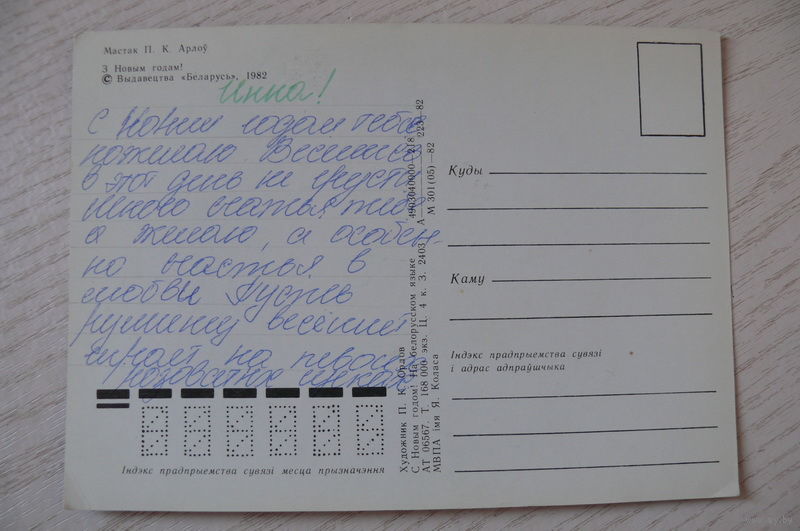 Мастак П. К. Арлоў
З Новым годам!
© Выдавецтва «Беларусь», 1982
Инна!
С Новым годом тебя
поздравляю. Веселись
в этот день не грусти
много счастья тебе
я желаю, а особен-
но счастья в
любви Пусть
румянец весенний
играет на твоих
розоватых щеках
Індэкс прадпрыемства сувязі месца прызначэння
Художник П. К. Орлов
С Новым годом! На белорусском языке
АТ 06567. Т. 168 000 экз. Ц. 4 к. З. 2403
МВПА імя Я. Коласа
4903040000—218
М 301(05)—82
223—82
Куды
Каму
Індэкс прадпрыемства сувязі
і адрас адпраўшчыка